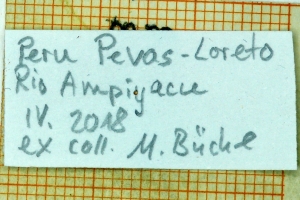 Peru Pevas-Loreto
Rio Ampiyacu
IV. 2018
ex coll. M. Büche